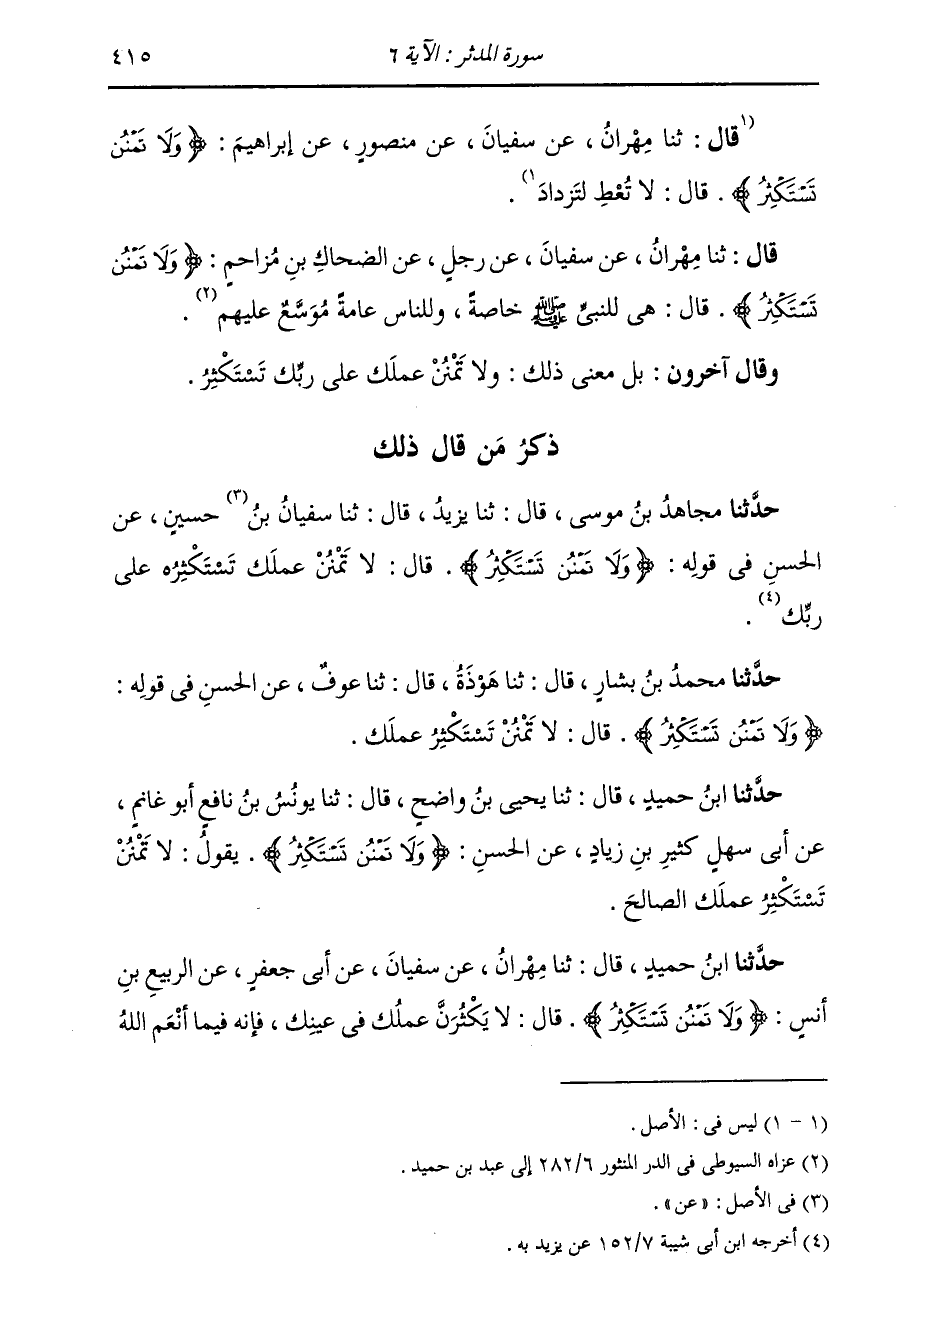 سورة المدثر : الآية ٦
٤١٥
(١قال : ثنا مِهْرانُ ، عن سفيانَ ، عن منصورٍ ، عن إبراهيمَ : ﴿ وَلَا تَمْنُن
تَسْتَكْثِرُ ﴾ . قال : لا تُعْطِ لتَزدادَ١) .
قال : ثنا مِهْرانُ ، عن سفيانَ ، عن رجلٍ ، عن الضحاكِ بنِ مُزاحمٍ : ﴿ وَلَا تَمْنُن
تَسْتَكْثِرُ ﴾ . قال : هى للنبىِّ ﷺ خاصةً ، وللناس عامةً مُوَسَّعٌ عليهم(٢) .
وقال آخرون : بل معنى ذلك : ولا تَمْنُنْ عملَك على ربِّك تَسْتَكْثِرُ .
ذكرُ مَن قال ذلك
حدَّثنا مجاهدُ بنُ موسى ، قال : ثنا يزيدُ ، قال : ثنا سفيانُ بنُ(٣) حسينٍ ، عن
الحسنِ فى قولِه : ﴿ وَلَا تَمْنُن تَسْتَكْثِرُ ﴾ . قال : لا تَمْنُنْ عملَك تَسْتَكْثِرُه على
ربِّك(٤) .
حدَّثنا محمدُ بنُ بشارٍ ، قال : ثنا هَوْذَةُ ، قال : ثنا عوفٌ ، عن الحسنِ فى قولِه :
﴿ وَلَا تَمْنُن تَسْتَكْثِرُ ﴾ . قال : لا تَمْنُنْ تَسْتَكْثِرُ عملَك .
حدَّثنا ابنُ حميدٍ ، قال : ثنا يحيى بنُ واضحٍ ، قال : ثنا يونُسُ بنُ نافعٍ أبو غانمٍ ،
عن أبى سهلٍ كثيرِ بنِ زيادٍ ، عن الحسنِ : ﴿ وَلَا تَمْنُن تَسْتَكْثِرُ ﴾ . يقولُ : لا تَمْنُنْ
تَسْتَكْثِرُ عملَك الصالحَ .
حدَّثنا ابنُ حميدٍ ، قال : ثنا مِهْرانُ ، عن سفيانَ ، عن أبى جعفرٍ ، عن الربيعِ بنِ
أنسٍ : ﴿ وَلَا تَمْنُن تَسْتَكْثِرُ ﴾ . قال : لا يَكْثُرَنَّ عملُك فى عينِك ، فإنه فيما أنْعَم اللهُ
(١ - ١) ليس فى : الأصل .
(٢) عزاه السيوطى فى الدر المنثور ٢٨٢/٦ إلى عبد بن حميد .
(٣) فى الأصل : « عن » .
(٤) أخرجه ابن أبى شيبة ١٥٢/٧ عن يزيد به .